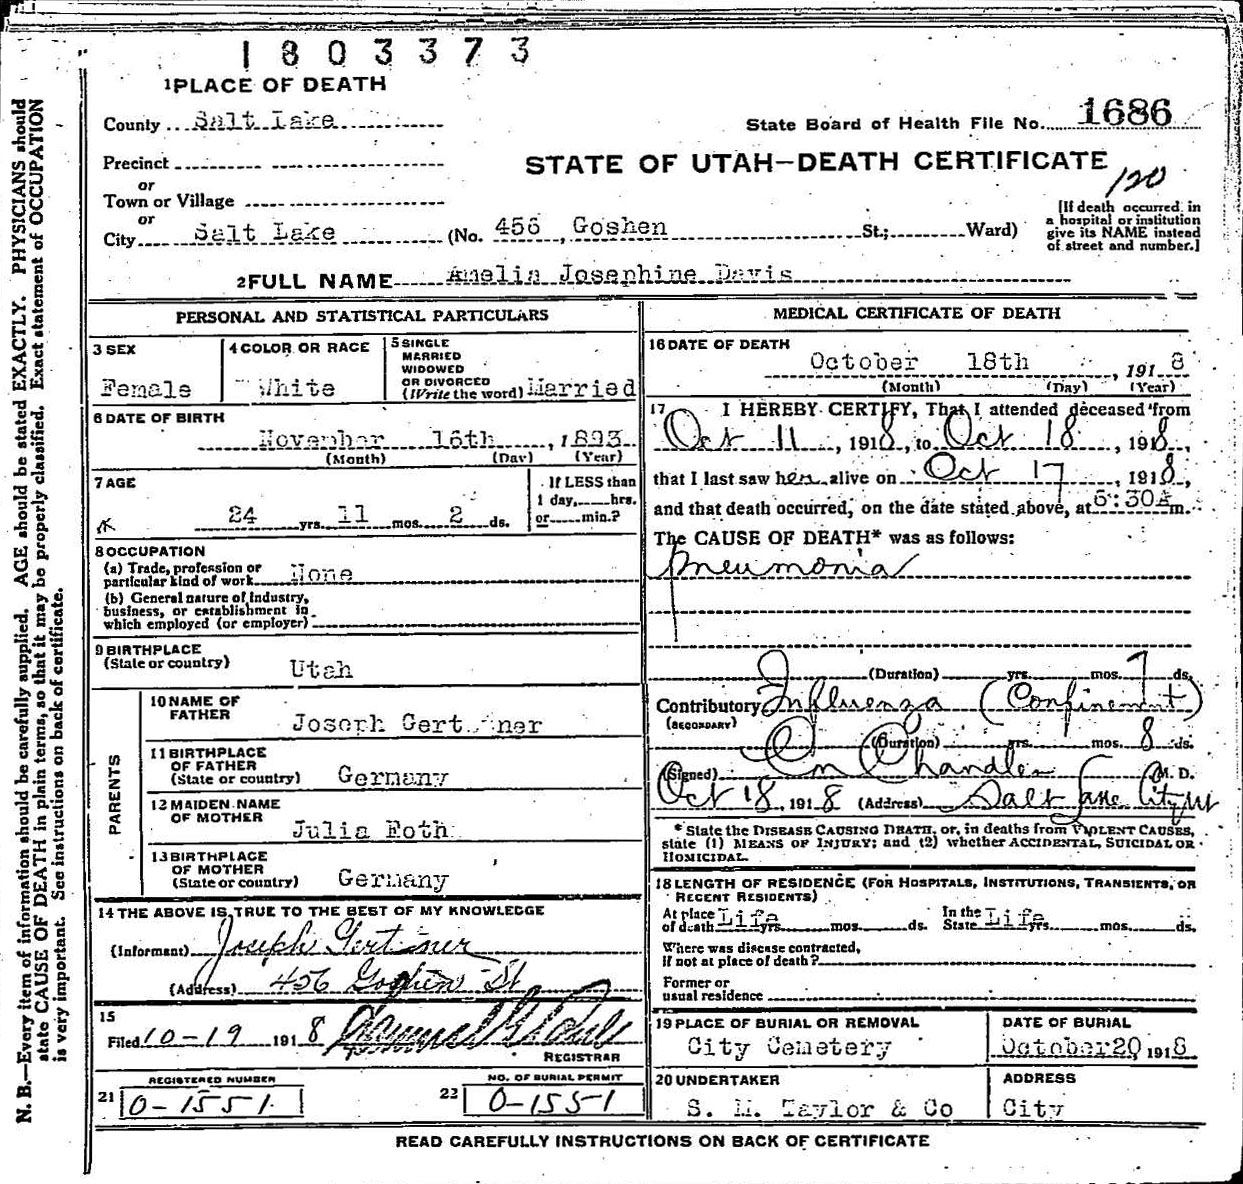 1803373
1 PLACE OF DEATH
County Salt Lake
State Board of Health File No. 1686
Precinct
STATE OF UTAH—DEATH CERTIFICATE
120
or
Town or Village
or
City Salt Lake (No. 456, Goshen St.; Ward)
[If death occurred in
a hospital or institution
give its NAME instead
of street and number.]
2 FULL NAME Amelia Josephine Davis
PERSONAL AND STATISTICAL PARTICULARS
3 SEX
Female
4 COLOR OR RACE
White
5 SINGLE
MARRIED
WIDOWED
OR DIVORCED
(Write the word) Married
6 DATE OF BIRTH
November 16th, 1893
(Month) (Day) (Year)
7 AGE
24 yrs. 11 mos. 2 ds.
If LESS than
1 day, hrs.
or min.?
8 OCCUPATION
(a) Trade, profession or
particular kind of work None
(b) General nature of industry,
business, or establishment in
which employed (or employer)
9 BIRTHPLACE
(State or country) Utah
PARENTS
10 NAME OF
FATHER Joseph Gert ner
11 BIRTHPLACE
OF FATHER
(State or country) Germany
12 MAIDEN NAME
OF MOTHER Julia Foth
13 BIRTHPLACE
OF MOTHER
(State or country) Germany
14 THE ABOVE IS TRUE TO THE BEST OF MY KNOWLEDGE
(Informant) Joseph
(Address) 456 Goshen St
15
Filed 10-19 1918
REGISTRAR
REGISTERED NUMBER
21 0-1551
NO. OF BURIAL PERMIT
22 0-1551
MEDICAL CERTIFICATE OF DEATH
16 DATE OF DEATH
October 18th, 1918
(Month) (Day) (Year)
17 I HEREBY CERTIFY, That I attended deceased from
Oct 11, 1918, to Oct 18, 1918,
that I last saw her alive on Oct 17, 1918,
and that death occurred, on the date stated above, at 6:30A m.
The CAUSE OF DEATH* was as follows:
Pneumonia
(Duration) yrs. mos. 7 ds.
Contributory Influenza (Confinement)
(SECONDARY)
(Duration) yrs. mos. 8 ds.
(Signed) Chandler M. D.
Oct 18, 1918 (Address) Salt Lake City Ut
* State the DISEASE CAUSING DEATH, or, in deaths from VIOLENT CAUSES,
state (1) MEANS OF INJURY; and (2) whether ACCIDENTAL, SUICIDAL OR
HOMICIDAL.
18 LENGTH OF RESIDENCE (FOR HOSPITALS, INSTITUTIONS, TRANSIENTS, OR
RECENT RESIDENTS)
At place
of death Life yrs. mos. ds.
In the
State Life yrs. mos. ds.
Where was disease contracted,
if not at place of death?
Former or
usual residence
19 PLACE OF BURIAL OR REMOVAL
City Cemetery
DATE OF BURIAL
October 20, 1918
20 UNDERTAKER
S. M. Taylor & Co
ADDRESS
City
READ CAREFULLY INSTRUCTIONS ON BACK OF CERTIFICATE
N. B.—Every item of information should be carefully supplied. AGE should be stated EXACTLY. PHYSICIANS should
state CAUSE OF DEATH in plain terms, so that it may be properly classified. Exact statement of OCCUPATION
is very important. See instructions on back of certificate.